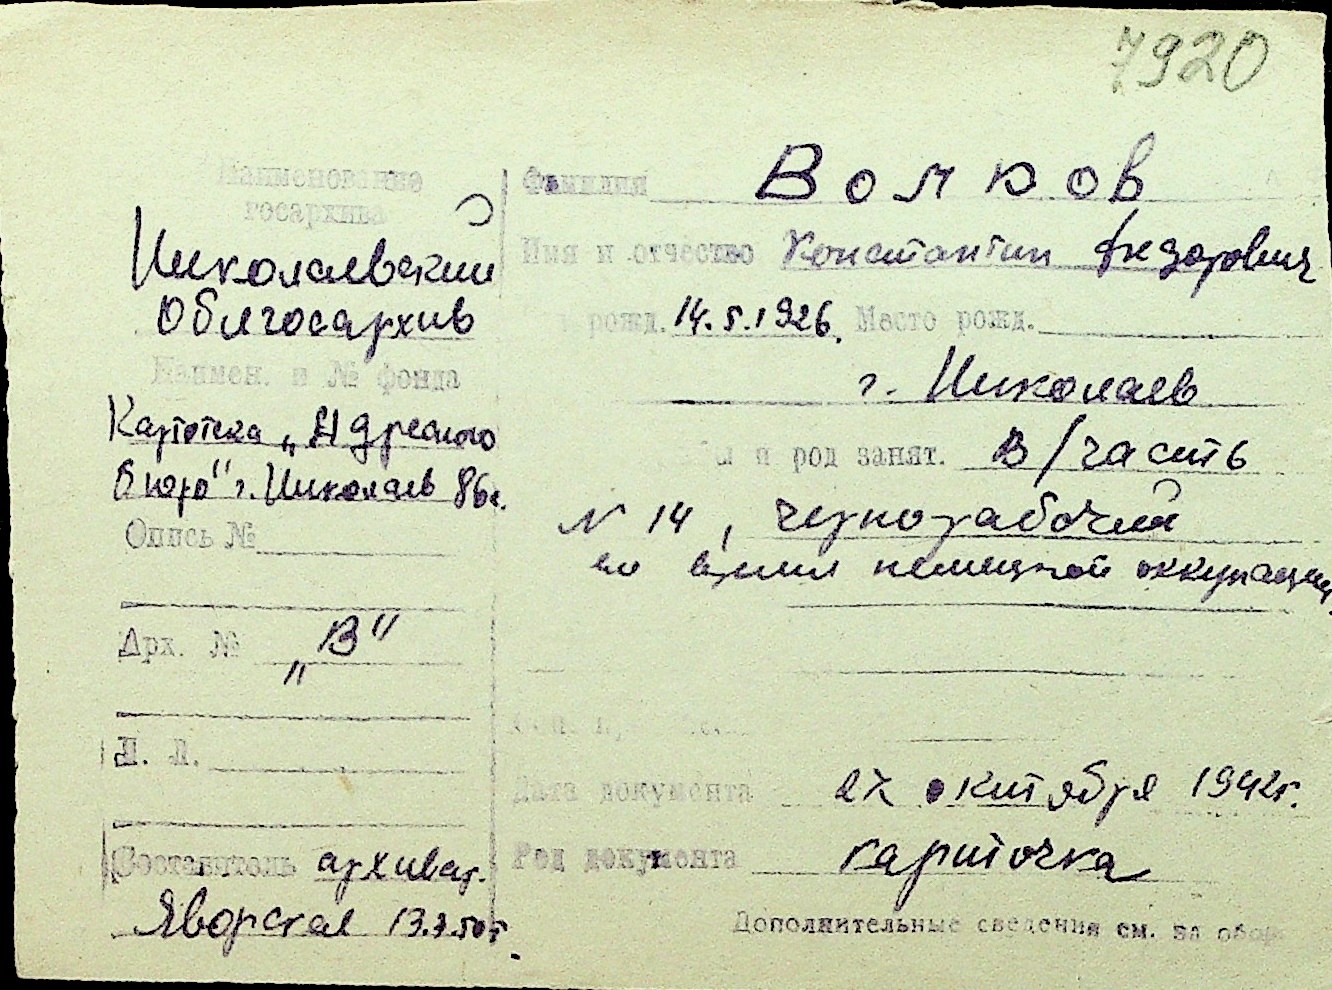 7920
Наименование
госархива
Николаевский
Облгосархив
Наимен. и № фонда
Картотека „Адресного
бюро" г. Николаев
Опись №
Арх. № „В"
Л. Л.
Составитель архивар.
Яворская 13.
Фамилия Волков
Имя и отчество Константин Федорович
рожд. 14.5.1926. Место рожд.
г. Николаев
и род занят. В/часть
N 14, чернорабочий
во время немецкой оккупации.
Дата документа 27 октября 1942г.
Род документа карточка
Дополнительные сведения см. на обор